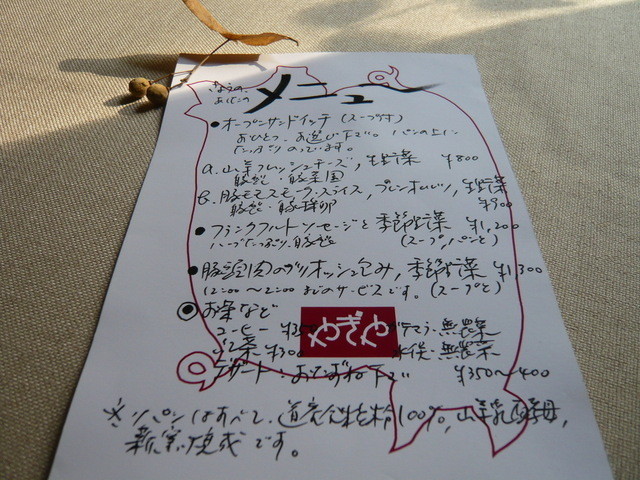 きょうの、
おべんとの
メニュー
●オープンサンドイッチ (スープ付)
おひとつ、お選び下さい。パンの上に
たっぷりのっています。
a. 山羊フレッシュチーズ, 生野菜 ¥800
b. 豚モモスモーク・スライス, プレンオムレツ, 生野菜
¥900
●フランクフルトソーセージと季節野菜 ¥1,200
ハーブたっぷり、 (スープ、パンと)
●豚頭肉のブリオッシュ包み, 季節野菜 ¥1,300
12:00〜2:00 までのサービスです。(スープと)
◎お茶など
コーヒー
やぎや
無農薬
紅茶 ¥300 無農薬
デザート:おたずね下さい ¥350〜400
※パンはすべて、道産小麦粉100%, 山羊乳酵母,
薪窯焼成です。